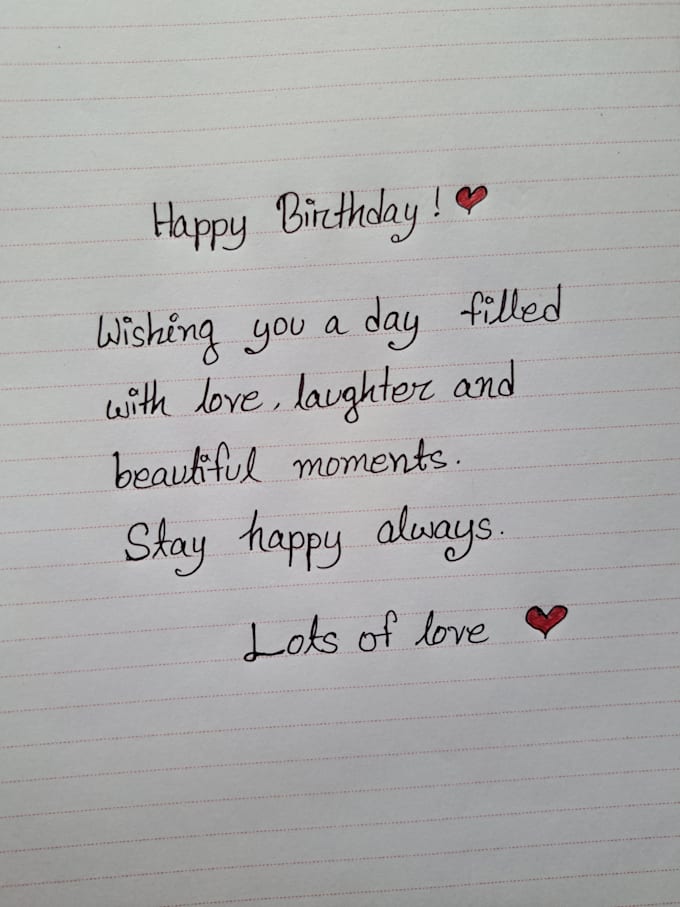 Happy Birthday! ❤
Wishing you a day filled
with love, laughter and
beautiful moments.
Stay happy always.
Lots of love ❤